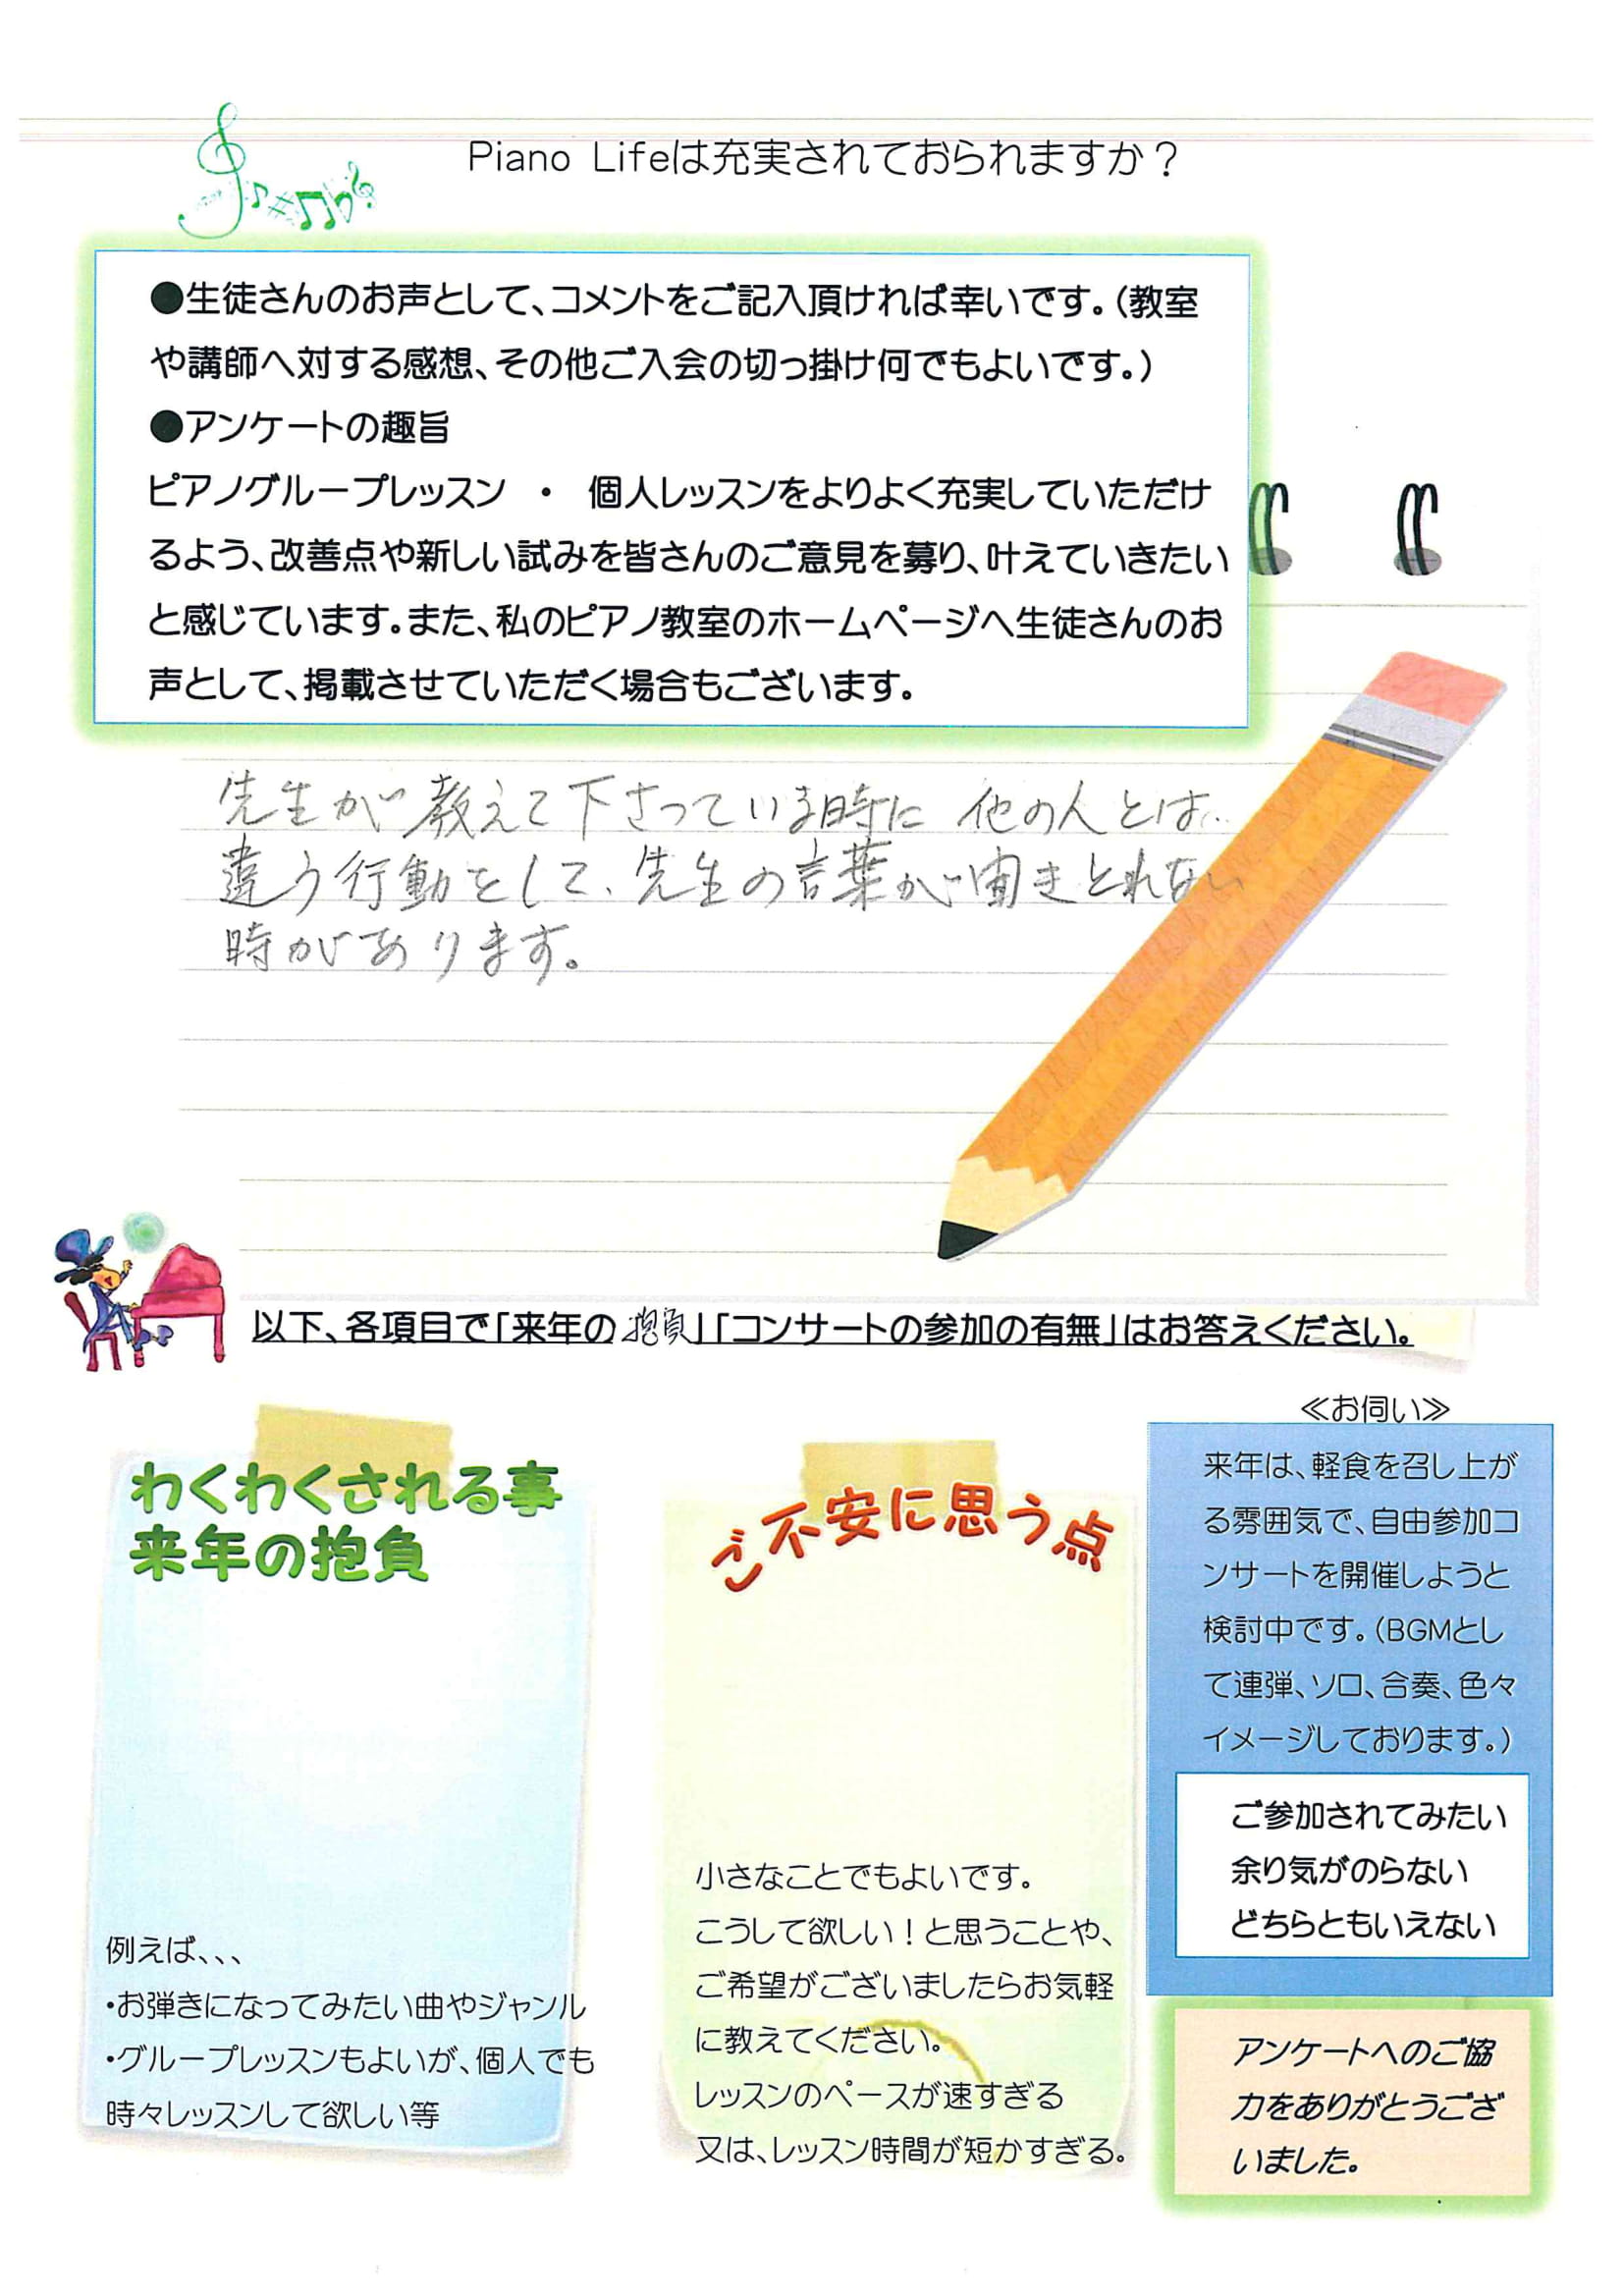 Piano Lifeは充実されておられますか？
●生徒さんのお声として、コメントをご記入頂ければ幸いです。（教室
や講師へ対する感想、その他ご入会の切っ掛け何でもよいです。）
●アンケートの趣旨
ピアノグループレッスン ・ 個人レッスンをよりよく充実していただけ
るよう、改善点や新しい試みを皆さんのご意見を募り、叶えていきたい
と感じています。また、私のピアノ教室のホームページへ生徒さんのお
声として、掲載させていただく場合もございます。
先生が教えて下さっている時に 他の人とは
違う行動をして、先生の言葉が聞きとれない
時があります。
以下、各項目で「来年の抱負」「コンサートの参加の有無」はお答えください。
わくわくされる事
来年の抱負
例えば、、、
・お弾きになってみたい曲やジャンル
・グループレッスンもよいが、個人でも
時々レッスンして欲しい等
ご不安に思う点
小さなことでもよいです。
こうして欲しい！と思うことや、
ご希望がございましたらお気軽
に教えてください。
レッスンのペースが速すぎる
又は、レッスン時間が短かすぎる。
≪お伺い≫
来年は、軽食を召し上が
る雰囲気で、自由参加コ
ンサートを開催しようと
検討中です。（BGMとし
て連弾、ソロ、合奏、色々
イメージしております。）
ご参加されてみたい
余り気がのらない
どちらともいえない
アンケートへのご協
力をありがとうござ
いました。